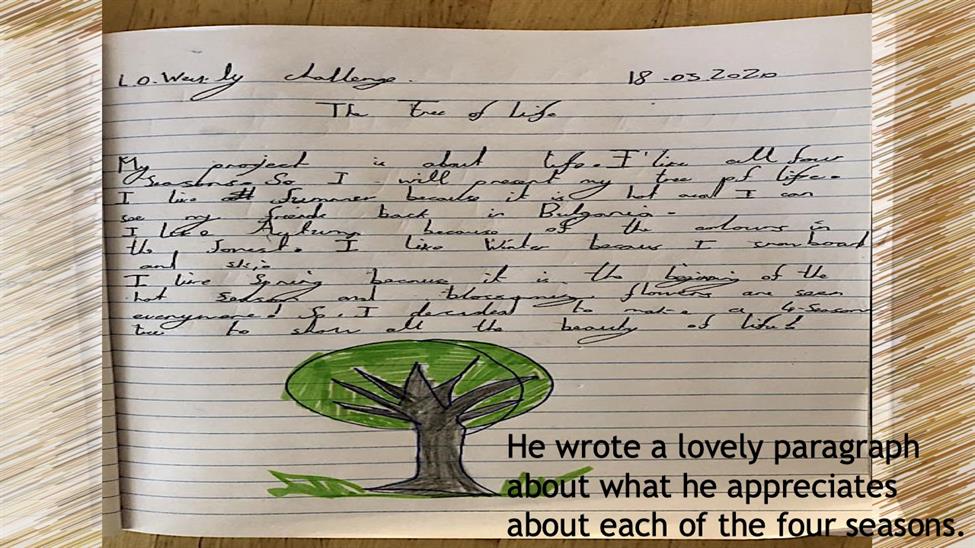 L.O. Weekly challenge. 18.03.2020
The Tree of Life
My project is about life. I like all four
Seasons. So I will present my tree of life.
I like Summer because it is hot and I can
see my friends back in Bulgaria.
I like Autumn because of the colours in
the forest. I like Winter because I snowboard
and ski.
I like Spring because it is the beginning of the
hot season and blossoming flowers are seen
everywhere! So, I decided to make a 4-season
tree to show all the beauty of life!
He wrote a lovely paragraph
about what he appreciates
about each of the four seasons.